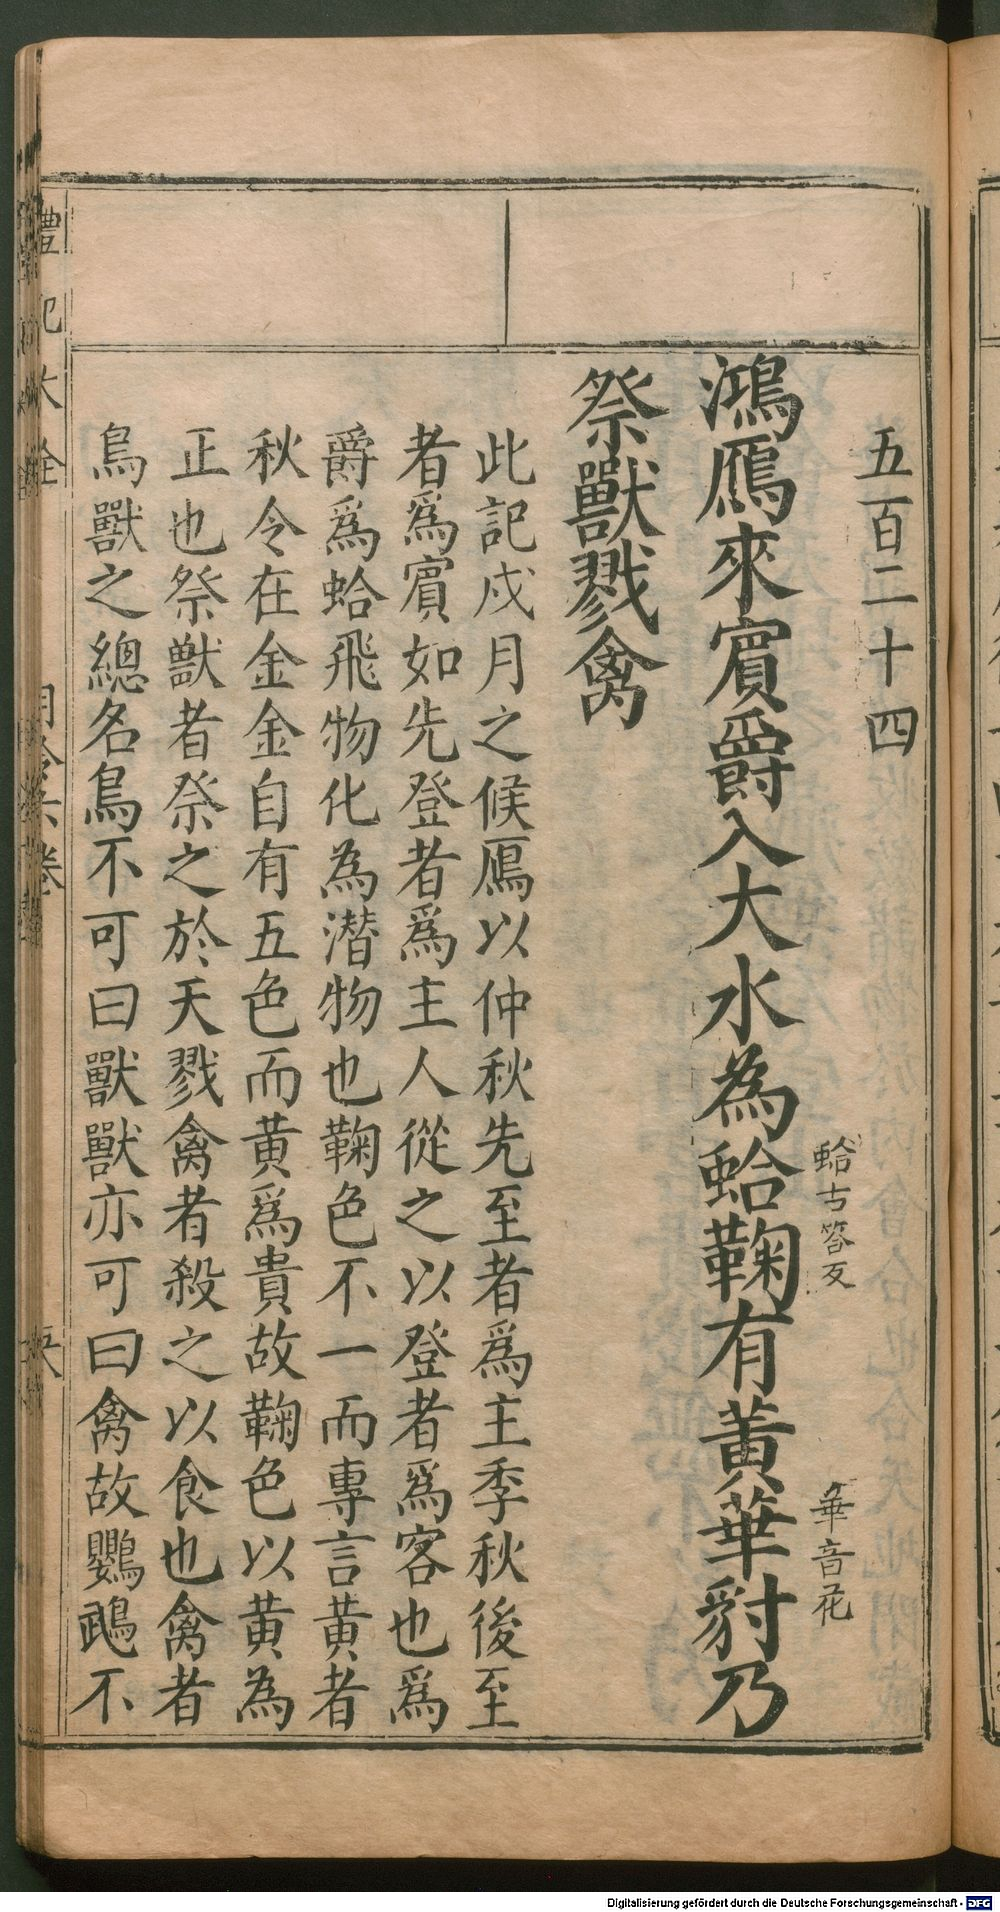 五百二十四
鴻鴈來賔爵入大水為蛤鞠有黃華豺乃
蛤古答反
華音花
祭獸戮禽
此記戍月之候鴈以仲秋先至者爲主季秋後至
者爲賔如先登者爲主人從之以登者爲客也爲
爵爲蛤飛物化為潜物也鞠色不一而專言黄者
秋令在金金自有五色而黄爲貴故鞠色以黄為
正也祭獸者祭之於天戮禽者殺之以食也禽者
鳥獸之總名鳥不可曰獸獸亦可曰禽故鸚鵡不
禮記大全
月令六卷
Digitalisierung gefördert durch die Deutsche Forschungsgemeinschaft - DFG